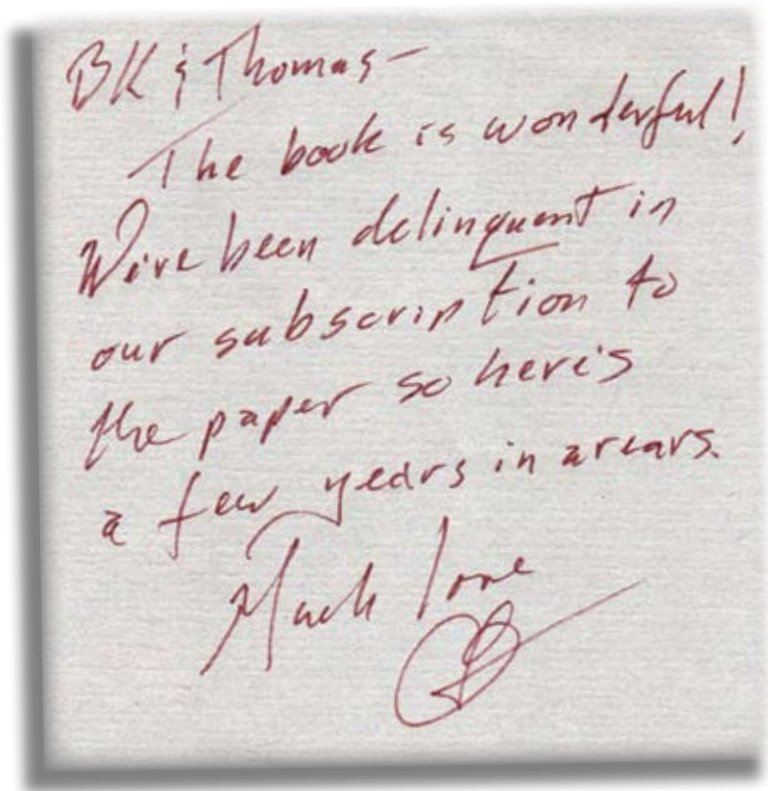 BK & Thomas-
The book is wonderful!
We've been delinquent in
our subscription to
the paper so here's
a few years in arears.
Much love